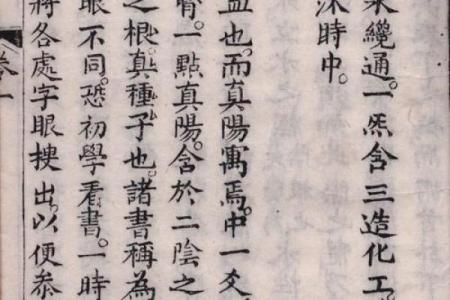 來纔通。一炁含三造化工。
沐時中。
血也。而真陽寓焉。中一爻
骨。一點真陽。含於二陰之
之根。真種子也。諸書稱為
眼不同。恐初學看書。一時
將各處字眼搜出。以便叅
卷一